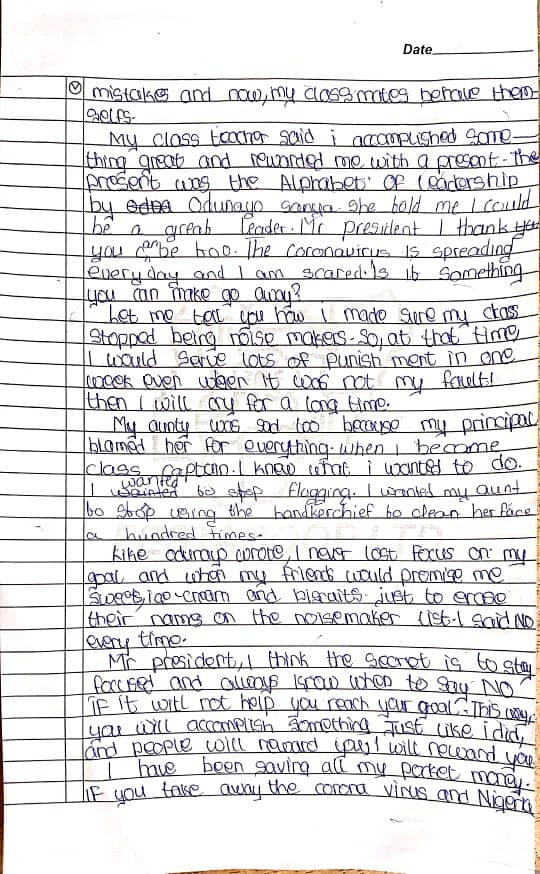 Date
mistakes and now, my classmates behave them-
selfs.
My class teacher said i accomplished some-
thing great and rewarded me with a present. The
present was the Alphabet OF leadership
by Odunayo Sanya. She told me I could
be a great leader. Mr president I thank
you can be too. The coronavirus is spreading
everyday and I am scared. Is it something
you can make go away?
Let me tell you how i made sure my class
stopped being noise makers. So, at that time
I would serve lots of punishment in one
week even when it was not my fault!
then I will cry for a long time.
My aunty was sad too because my principal
blamed her for everything. when I become
class captain. I knew what i wanted to do.
I wanted to stop flogging. I wanted my aunt
to stop using the handkerchief to clean her face
a hundred times.
Like odunayo wrote, I never lost focus on my
goal and when my friends would promise me
sweets, ice-cream and biscuits just to erase
their name on the noisemaker list. I said NO
every time.
Mr president, I think the secret is to stay
focused and always know when to say NO
IF it will not help you reach your goal. This way,
you will accomplish something Just like i did,
and people will reward you. I will reward you
I have been saving all my pocket money.
IF you take away the corona virus and Nigeria